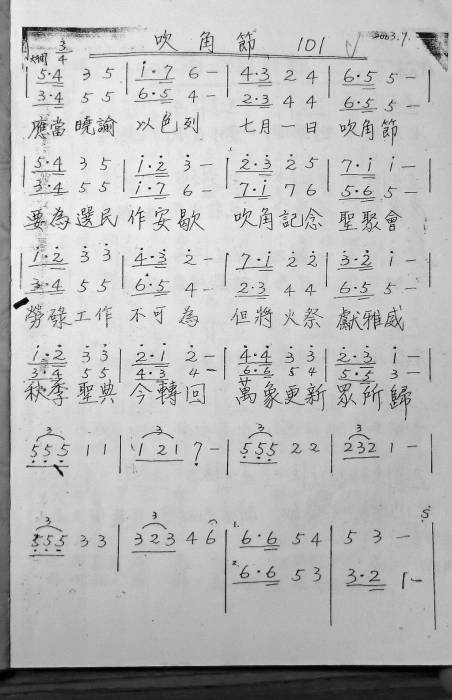 吹角節 101 2003.9.
3/4
5·4 3 5 | i·7 6 – | 4·3 2 4 | 6·5 5 –
3·4 5 5 | 6·5 4 – | 2·3 4 4 | 6·5 5 –
應當曉諭 以色列 七月一日 吹角節
5·4 3 5 | i·2 3 – | 2·3 2 5 | 7·i i –
3·4 5 5 | i·7 6 – | 7·i 7 6 | 5·6 5 –
要為選民 作安歇 吹角記念 聖聚會
i·2 3 3 | 4·3 2 – | 7·i 2 2 | 3·2 i –
3·4 5 5 | 6·5 4 – | 2·3 4 4 | 6·5 5 –
勞碌工作 不可為 但將火祭 獻雅威
i·2 3 3 | 2·i 2 – | 4·4 3 3 | 2·3 i –
3·4 5 5 | 4·3 4 – | 6·6 5 4 | 5·5 3 –
秋季聖典 今轉回 萬象更新 眾所歸
3 3 3 3
555 1 1 | 121 7 – | 555 2 2 | 232 1 –
3 3
555 3 3 | 323 4 6 | 1. 6·6 5 4 | 5 3 –
2. 6·6 5 3 | 3·2 1 –